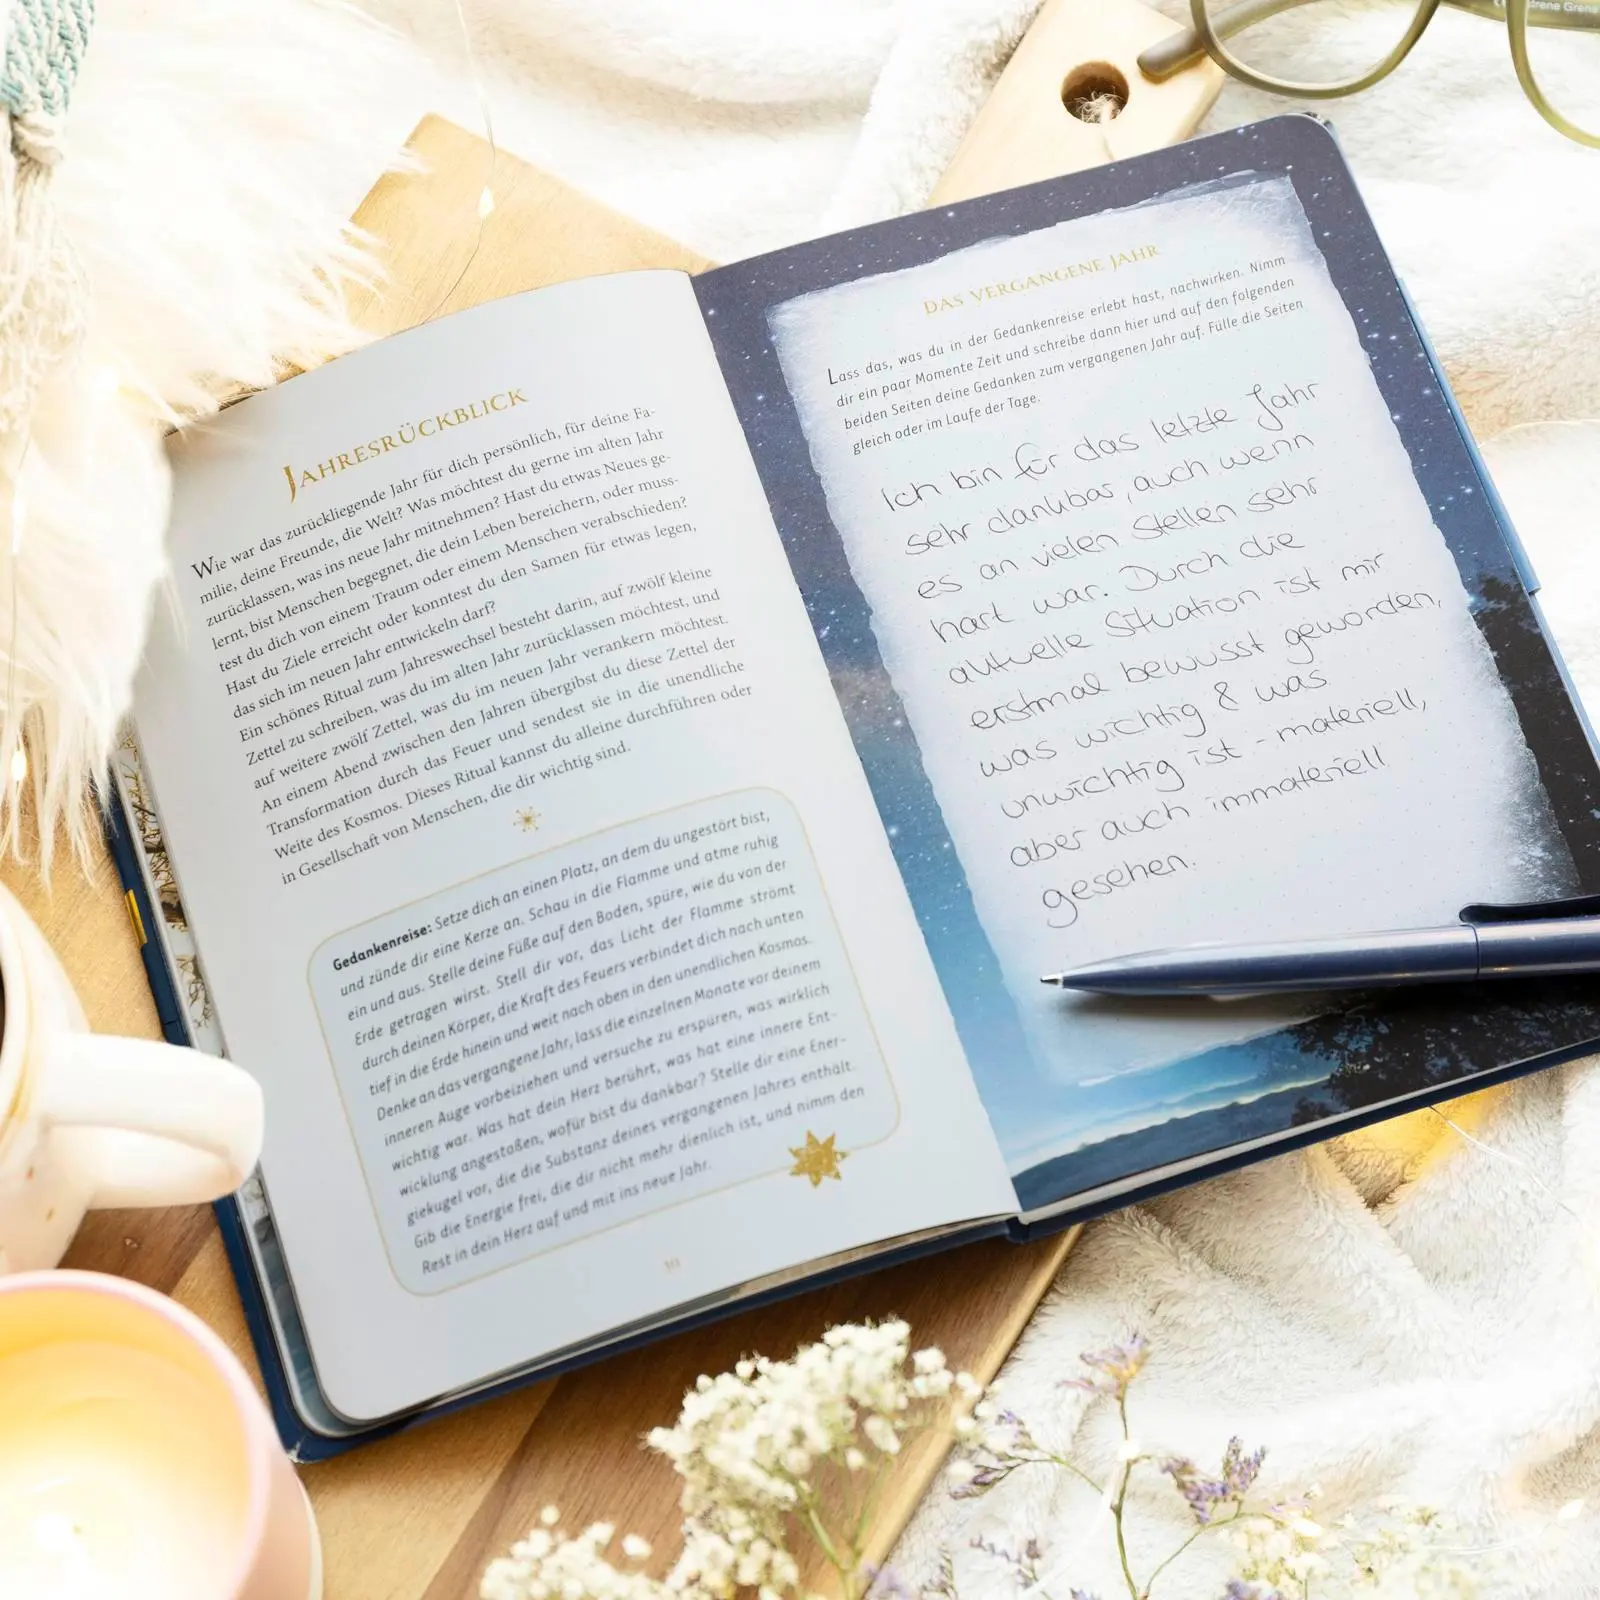 JAHRESRÜCKBLICK
Wie war das zurückliegende Jahr für dich persönlich, für deine Fa-
milie, deine Freunde, die Welt? Was möchtest du gerne im alten Jahr
zurücklassen, was ins neue Jahr mitnehmen? Hast du etwas Neues ge-
lernt, bist Menschen begegnet, die dein Leben bereichern, oder muss-
test du dich von einem Traum oder einem Menschen verabschieden?
Hast du Ziele erreicht oder konntest du den Samen für etwas legen,
das sich im neuen Jahr entwickeln darf?
Ein schönes Ritual zum Jahreswechsel besteht darin, auf zwölf kleine
Zettel zu schreiben, was du im alten Jahr zurücklassen möchtest, und
auf weitere zwölf Zettel, was du im neuen Jahr verankern möchtest.
An einem Abend zwischen den Jahren übergibst du diese Zettel der
Transformation durch das Feuer und sendest sie in die unendliche
Weite des Kosmos. Dieses Ritual kannst du alleine durchführen oder
in Gesellschaft von Menschen, die dir wichtig sind.
Gedankenreise: Setze dich an einen Platz, an dem du ungestört bist,
und zünde dir eine Kerze an. Schau in die Flamme und atme ruhig
ein und aus. Stelle deine Füße auf den Boden, spüre, wie du von der
Erde getragen wirst. Stell dir vor, das Licht der Flamme strömt
durch deinen Körper, die Kraft des Feuers verbindet dich nach unten
tief in die Erde hinein und weit nach oben in den unendlichen Kosmos.
Denke an das vergangene Jahr, lass die einzelnen Monate vor deinem
inneren Auge vorbeiziehen und versuche zu erspüren, was wirklich
wichtig war. Was hat dein Herz berührt, was hat eine innere Ent-
wicklung angestoßen, wofür bist du dankbar? Stelle dir eine Ener-
giekugel vor, die die Substanz deines vergangenen Jahres enthält.
Gib die Energie frei, die dir nicht mehr dienlich ist, und nimm den
Rest in dein Herz auf und mit ins neue Jahr.
DAS VERGANGENE JAHR
Lass das, was du in der Gedankenreise erlebt hast, nachwirken. Nimm
dir ein paar Momente Zeit und schreibe dann hier und auf den folgenden
beiden Seiten deine Gedanken zum vergangenen Jahr auf. Fülle die Seiten
gleich oder im Laufe der Tage.
Ich bin für das letzte Jahr
sehr dankbar, auch wenn
es an vielen Stellen sehr
hart war. Durch die
aktuelle Situation ist mir
erstmal bewusst geworden,
was wichtig & was
unwichtig ist - materiell,
aber auch immateriell
gesehen.